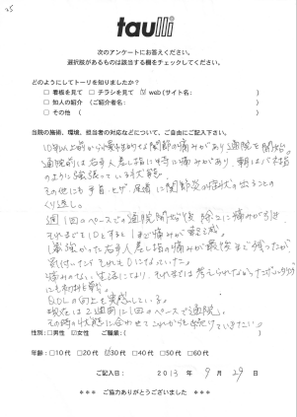 25
taulli
次のアンケートにお答えください。
選択肢があるものは該当する欄をチェックしてください。
どのようにしてトーリを知りましたか?
□看板を見て □チラシを見て ☑web(サイト名: )
□知人の紹介 (ご紹介者名: )
□その他 ( )
当院の施術、環境、担当者の対応などについて、ご自由にご記入下さい。
10年以上前から 関節の痛みがあり通院を開始。
通院前は右手人差し指に特に痛みがあり、朝は
のように強張っている状態。
その他にも手首・ヒザ、 に関節炎の症状の出ることの
くり返し。
週1回のペースでの通院開始後 除々に痛みが引き、
それまで10とすると1ほど痛みが 軽減。
1番強かった右手人差し指の痛みが最後まで残ったが、
気付いたらそれも0になっていた。
痛みのない生活になり、それまでは考えられなかった
にも初挑戦。
QOLの向上を実感している。
現在は2週間に1回のペースで通院。
その時の状態に合わせてこれからも続けていきたい。
性別:□男性 ☑女性 ご職業( )
年齢:□10代 □20代 ☑30代 □40代 □50代 □60代
ご記入日: 2013年 9月 29日
*** ご協力ありがとうございました ***